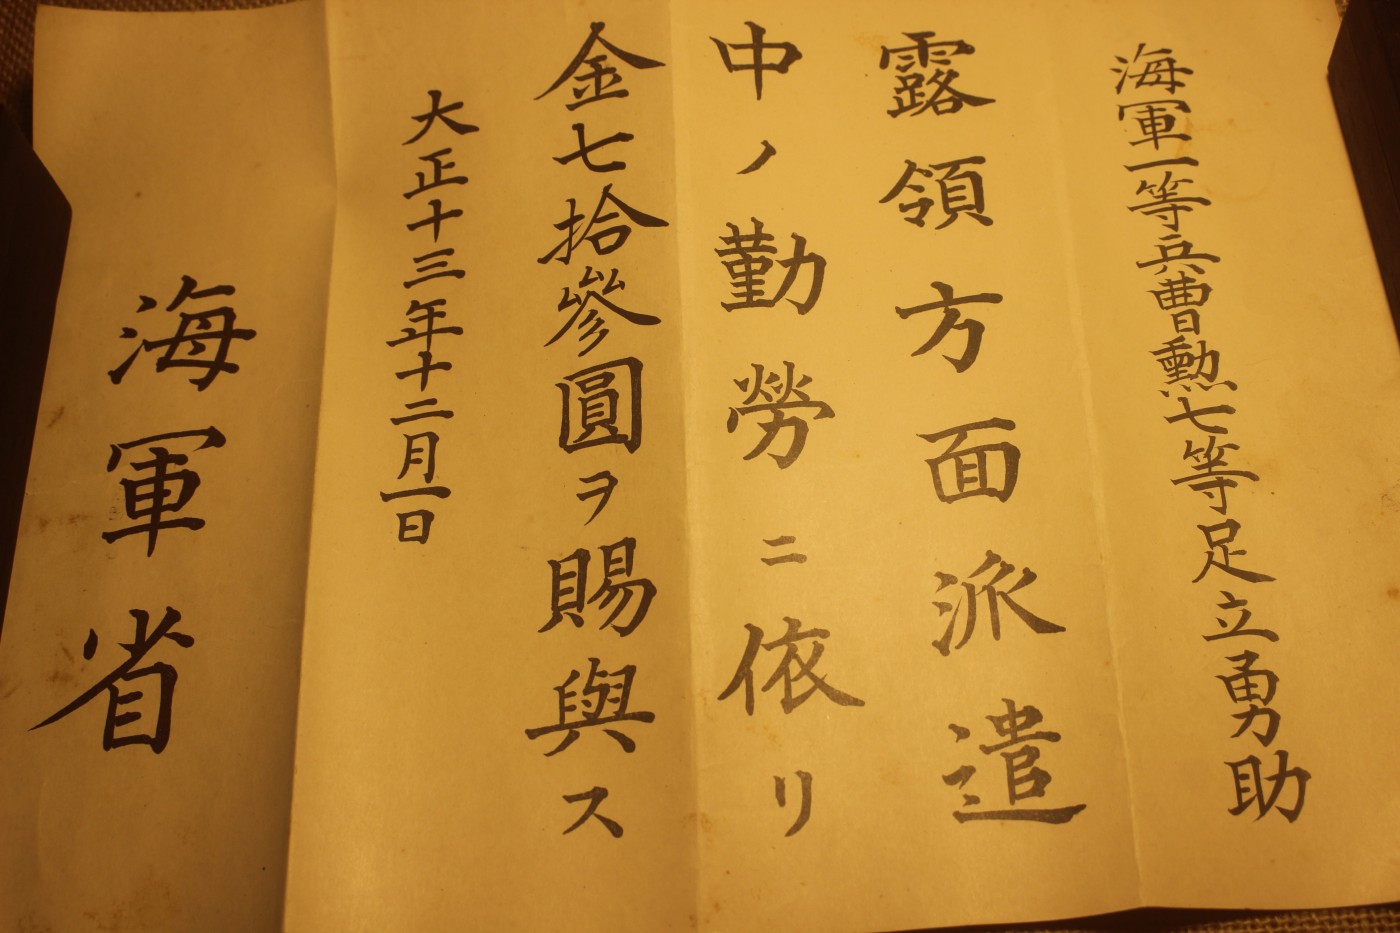 海軍一等兵曹勲七等足立勇助
露領方面派遣
中ノ勤勞ニ依リ
金七拾參圓ヲ賜與ス
大正十三年十二月一日
海軍省